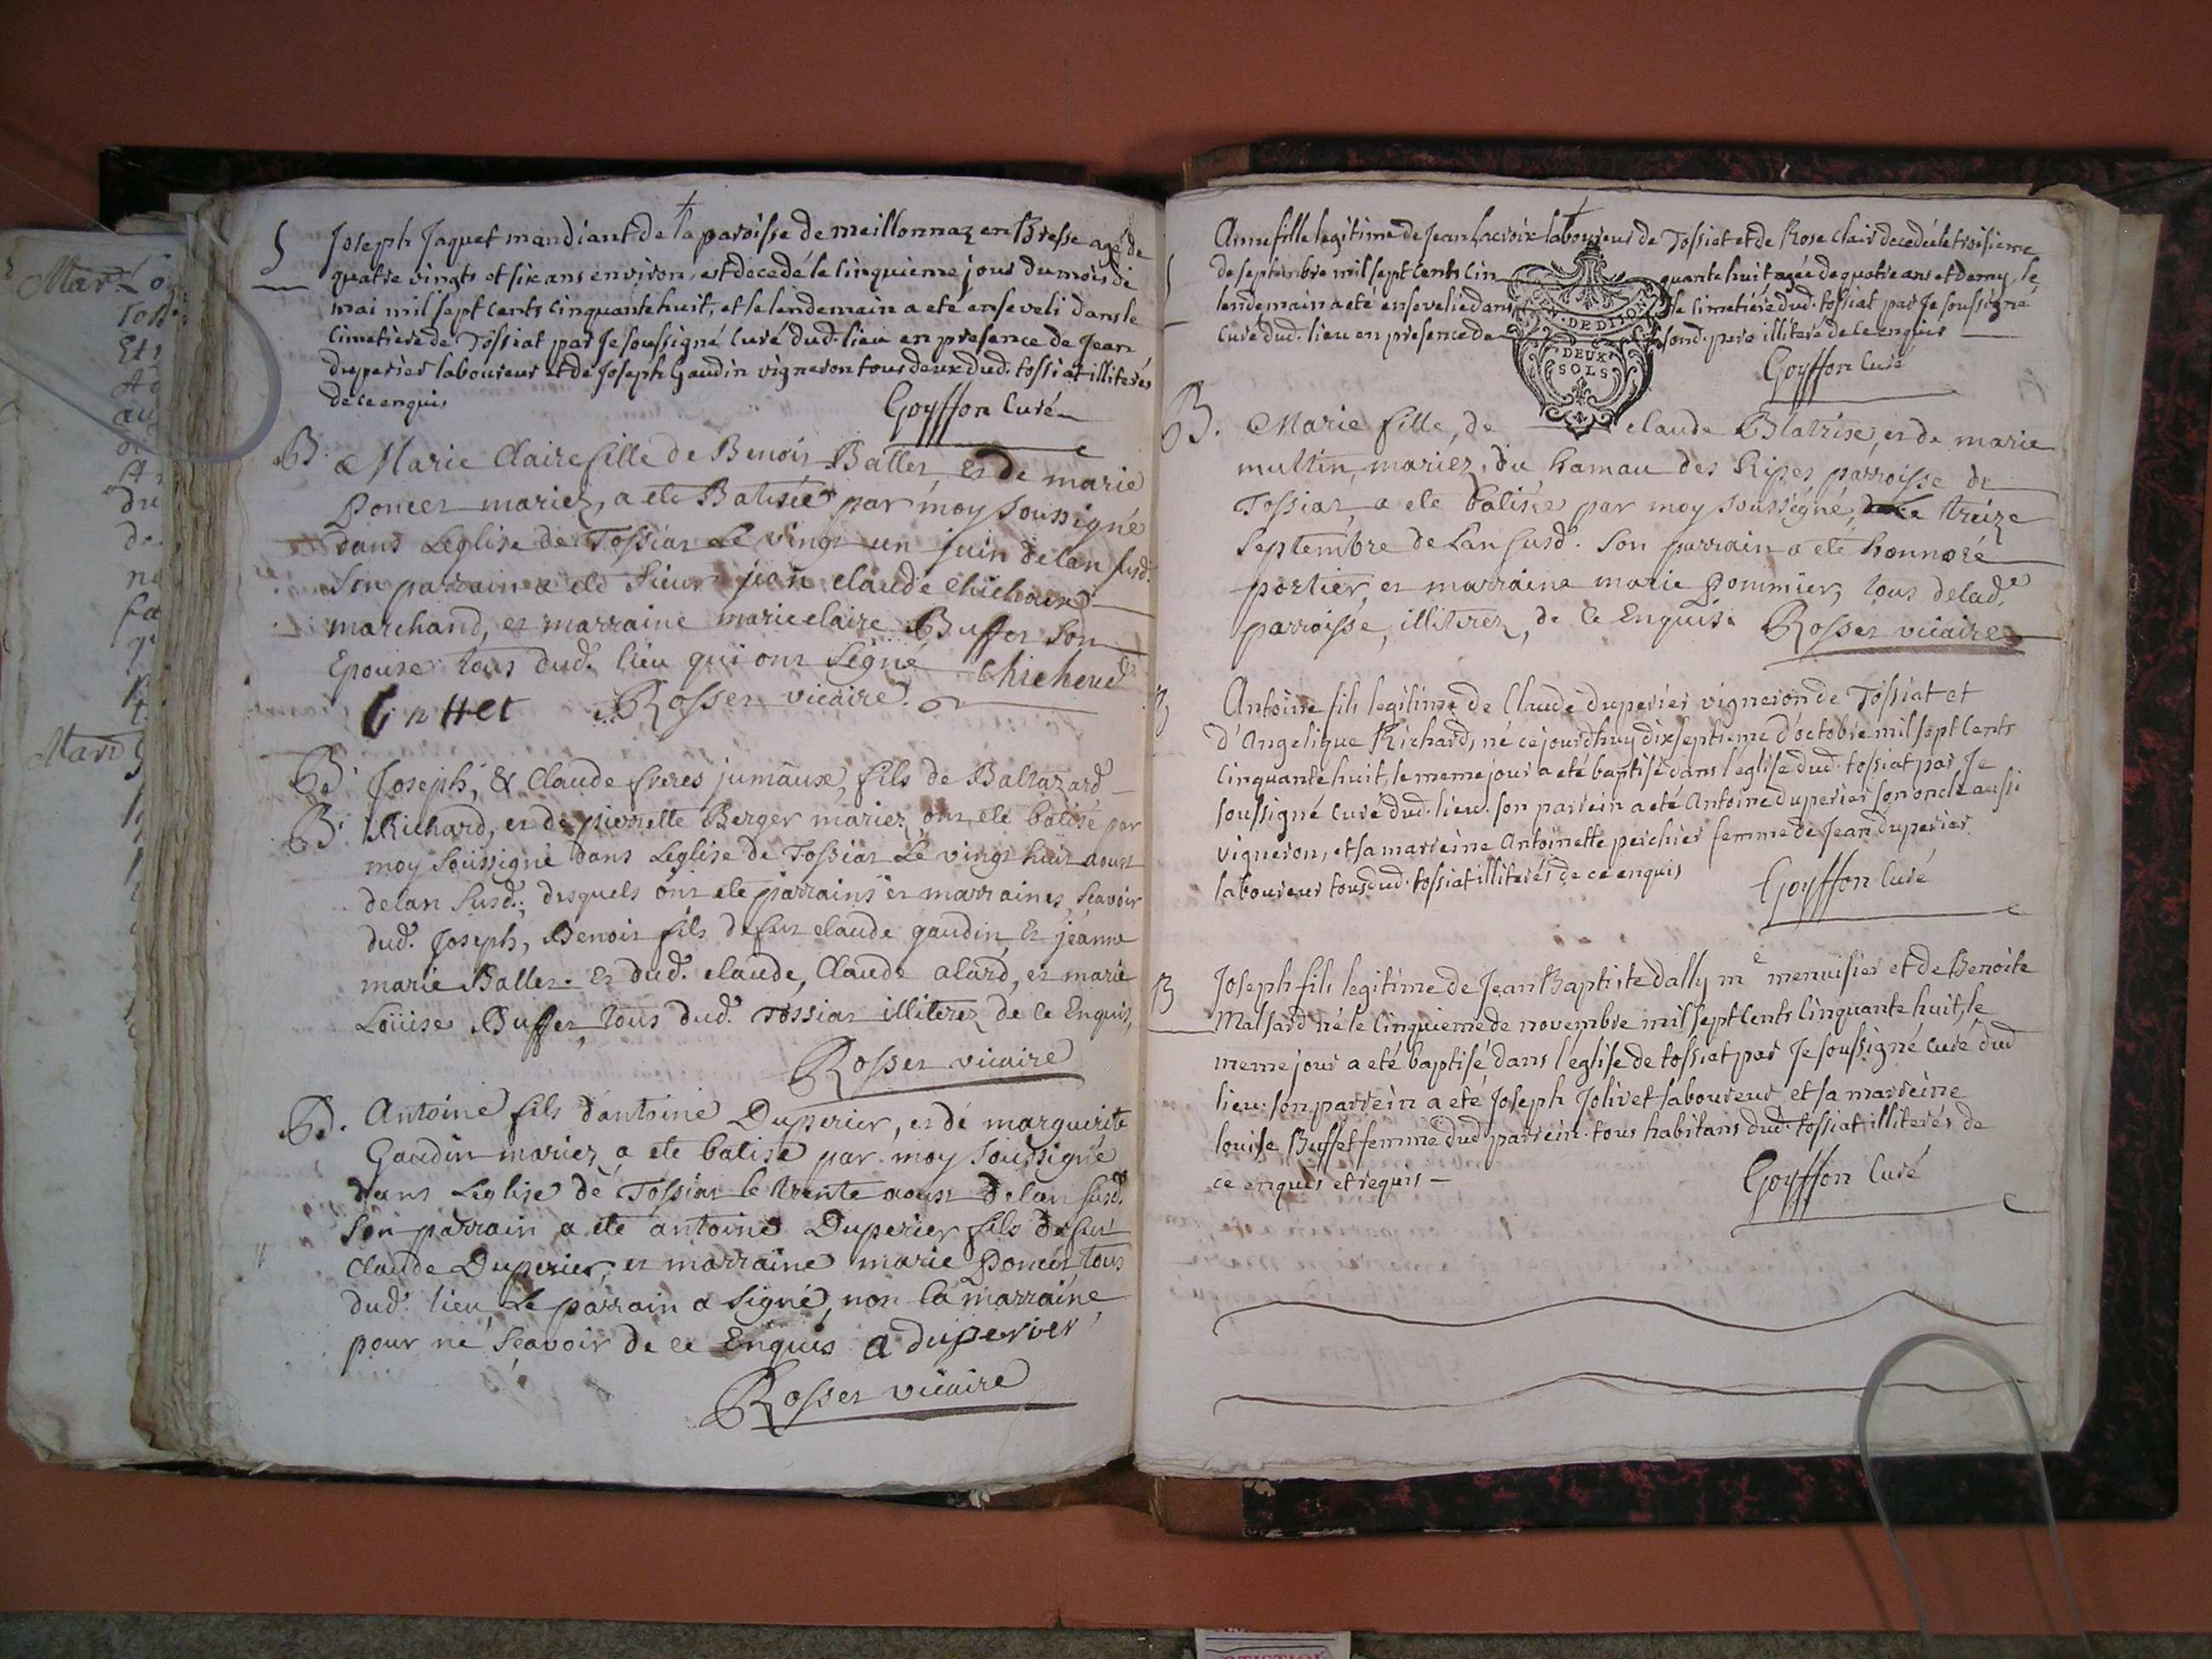 S Joseph Jaquet mandiant de la paroisse de meillonnaz en Bresse agé de
quatre vingts et six ans environ, est decedé le cinquieme jour du mois de
mai mil sept cents cinquante huit, et le lendemain a eté enseveli dans le
cimetière de Tossiat par Je soussigné curé dud. lieu en presence de Jean
duperier laboureur et de Joseph Gaudin vigneron tous deux dud. tossiat illiterés
de ce enquis Goyffon Curé
B. Marie Claire fille de Benoit Ballet, et de marie
Poncet mariez, a ete Batisée par moy soussigné
dans Leglise de Tossiat Le vingt un juin de lan susd.
Son parrain a ete sieur jean claude Chicheud
marchand, et marraine marie claire Buffet son
Epouse tous dud. lieu qui ont Signé Chicheud
Rosset vicaire
B. Joseph, & Claude freres jumaux, fils de Baltazard
B. Richard, et de pierrette Berger mariez, ont ete batisé par
moy Soussigné dans Leglise de Tossiat Le vingt huit aoust
de lan Susd. desquels ont ete parrains et marraines, Scavoir
dud. Joseph, Benoit fils de fut claude gaudin, Et jeanne
marie Ballet. Et dud. claude, Claude alard, et marie
Loüise Buffet, tous dud. Tossiat illiterez de ce Enquis,
Rosset vicaire
B. Antoine fils d'antoine Duperier, et de marguerite
Gaudin mariez, a ete batisé par moy Soussigné
dans Leglise de Tossiat le trente aoust de lan susd.
Son parrain a ete antoine Duperier fils de fut
Claude Duperier, et marraine marie Poncet tous
dud. lieu, Le parrain a Signé, non la marraine
pour ne Scavoir de ce Enquis a duperier
Rosset vicaire
Anne fille legitime de Jean Lacroix laboureur de Tossiat et de Rose Clair decedée le troisieme
de septembre mil sept cents cin quante huit, agée de quatre ans et demy, le
lendemain a eté ensevelie dans le cimetière dud. tossiat par Je soussigné
curé dud. lieu en presence de sond. pere illiteré de ce enquis
Goyffon Curé
DE DIJON
DEUX
SOLS
B. Marie fille, de claude Blatrise, et de marie
muttin, mariez, du hamau des Ripes parroisse de
Tossiat, a ete batisée par moy soussigné, le treize
Septembre de Lan susd. Son parrain a ete honnoré
portier, et marraine marie Pommier, tous de lad.e
parroisse, illiterez, de Ce Enquis. Rosset vicaire
B Antoine fils legitime de Claude duperier vigneron de Tossiat et
d'Angelique Richard, né ce jourdhuy dixseptieme d'octobre mil sept cents
cinquante huit, le meme jour a eté baptisé dans l'eglise dud. tossiat par Je
soussigné curé dud. lieu. son parrein a eté Antoine duperier son oncle aussi
vigneron, et sa marreine Antoinette perchier femme de Jean duperier
laboureur tous dud. tossiat illiterés de ce enquis Goyffon Curé
B Joseph fils legitime de Jean Baptiste dally m e menuisier et de Benoite
Malfard né le cinquieme de novembre mil sept cents cinquante huit, le
meme jour a eté baptisé dans l'eglise de tossiat par Je soussigné curé dud
lieu. son parrein a eté Joseph Jolivet laboureur et sa marreine
louise Buffet femme dud parrein. tous habitans dud. tossiat illiterés de
ce enquis et requis Goyffon Curé